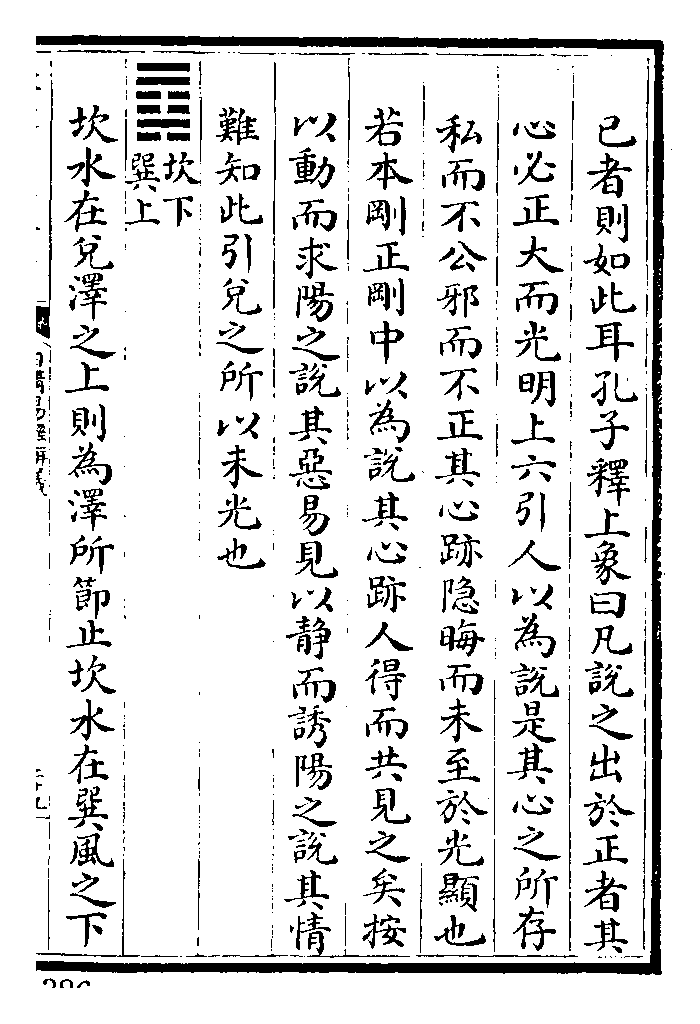 已者則如此耳孔子釋上象曰凡說之出於正者其
心必正大而光明上六引人以為說是其心之所存
私而不公邪而不正其心跡隐晦而未至於光顯也
若本剛正剛中以為說其心跡人得而共見之矣按
以動而求陽之說其惡易見以静而誘陽之說其情
難知此引兌之所以未光也
坎下
巽上
坎水在兌澤之上則為澤所節止坎水在巽風之下
日講易經解義
二十九